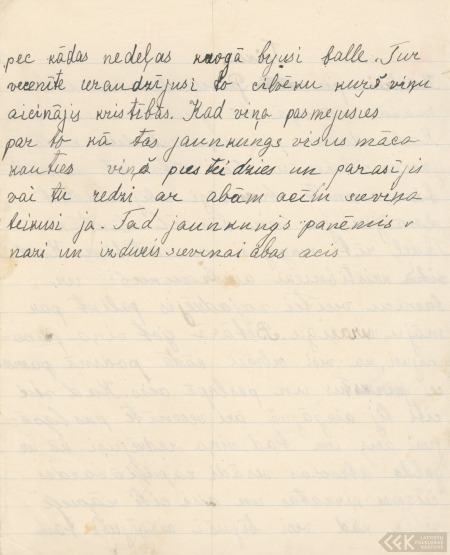 pec kādas nedeļas krogā bijusi balle. Tur
vecenīte uraudzījusi to cilvēku kurš viņu
aicinājis kristībās. Kad viņa pasmejusies
par to kā tas jaunkungs visus māca
kauties viņš piesteidzies un parasījis
vai tu redzi ar abām acīm sieviņa
teikusi ja. Tad jaunkungs paņēmis
nazi un izdūris sieviņai abas acis
LATVIEŠU
FOLKLORAS
KRĀTUVE